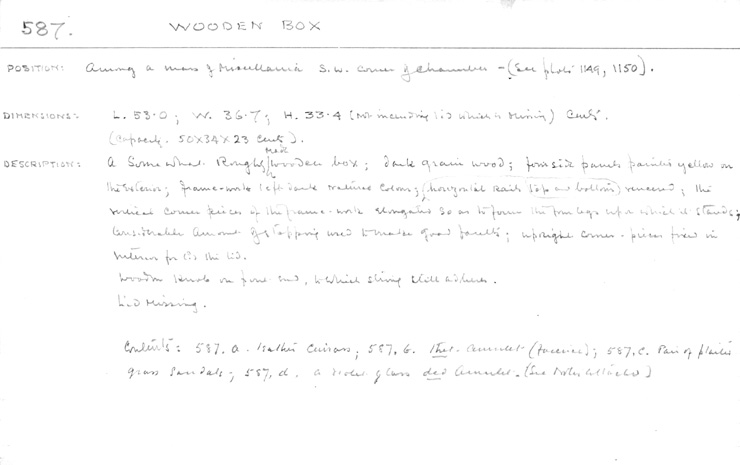 587. WOODEN BOX
POSITION: Among a mass of Miscellania S.W. corner of Chamber - (See photos 1149, 1150).
DIMENSIONS: L. 53.0; W. 36.7; H. 33.4 (not including lid which is missing) Cent.
(Capacity. 50x34x23 cent).
DESCRIPTION: A Somewhat Roughly made wooden box; dark grain wood; four side panels painted yellow on
the exterior; frame-work left dark natural colour; (horizontal rails top and bottom) veneered; the
vertical corner pieces of the frame-work elongated so as to form the four legs upon which it stands;
considerable amount of stopping used to make good faults; upright corner-pieces fixed in
interior for the lid.
Wooden knob on front end, to which string still adheres.
Lid Missing.
Contents: 587, a. leather Cuirass; 587, b. Thet-amulet (faience); 587, c. Pair of plaited
grass Sandals; 587, d. a violet glass ded Amulet. (See Notes attached)